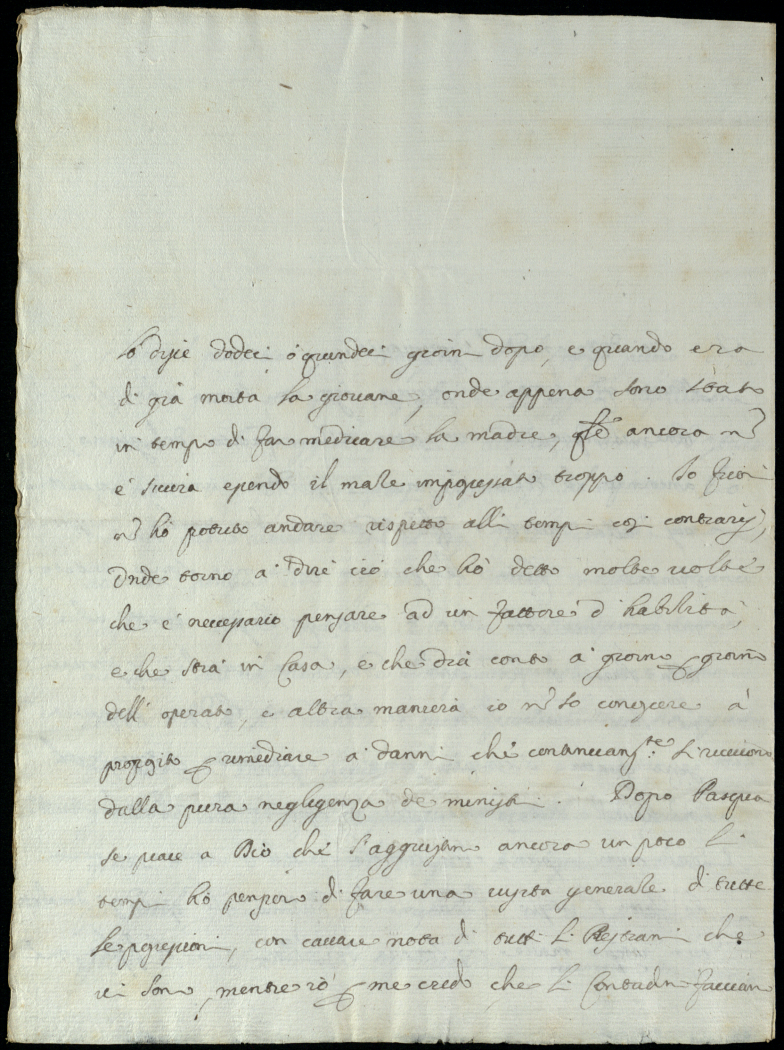 lo disse dodeci ò quindeci giorni dopo, e quando era
di già morta la giovane, onde appena sono stato
in tempo di far medicare la madre, quale ancora nō
è sicura essendo il male impossessato troppo. Io fuori
nō hò potuto andare rispetto alli tempi così contrarij,
onde torno a' dire ciò che hò detto molte volte
che e' necessario pensare ad un fattore d'habilità,
e che stia in Casa, e che dia conto à giorno ꝑ giorno
dell'operato, e altra maniera io nō so conoscere à
proposito ꝑ rimediare a' danni che continuamᵗᵉ si ricevono
dalla pura negligenza de ministri. Dopo Pasqua
se piace a Dio che s'aggiustino ancora un poco li
tempi hò pensiero di fare una visita generale di tutte
le possessioni, con cavare nota di tutti li Bestiami che
vi sono, mentre io ꝑ me credo che li Contadini facciano